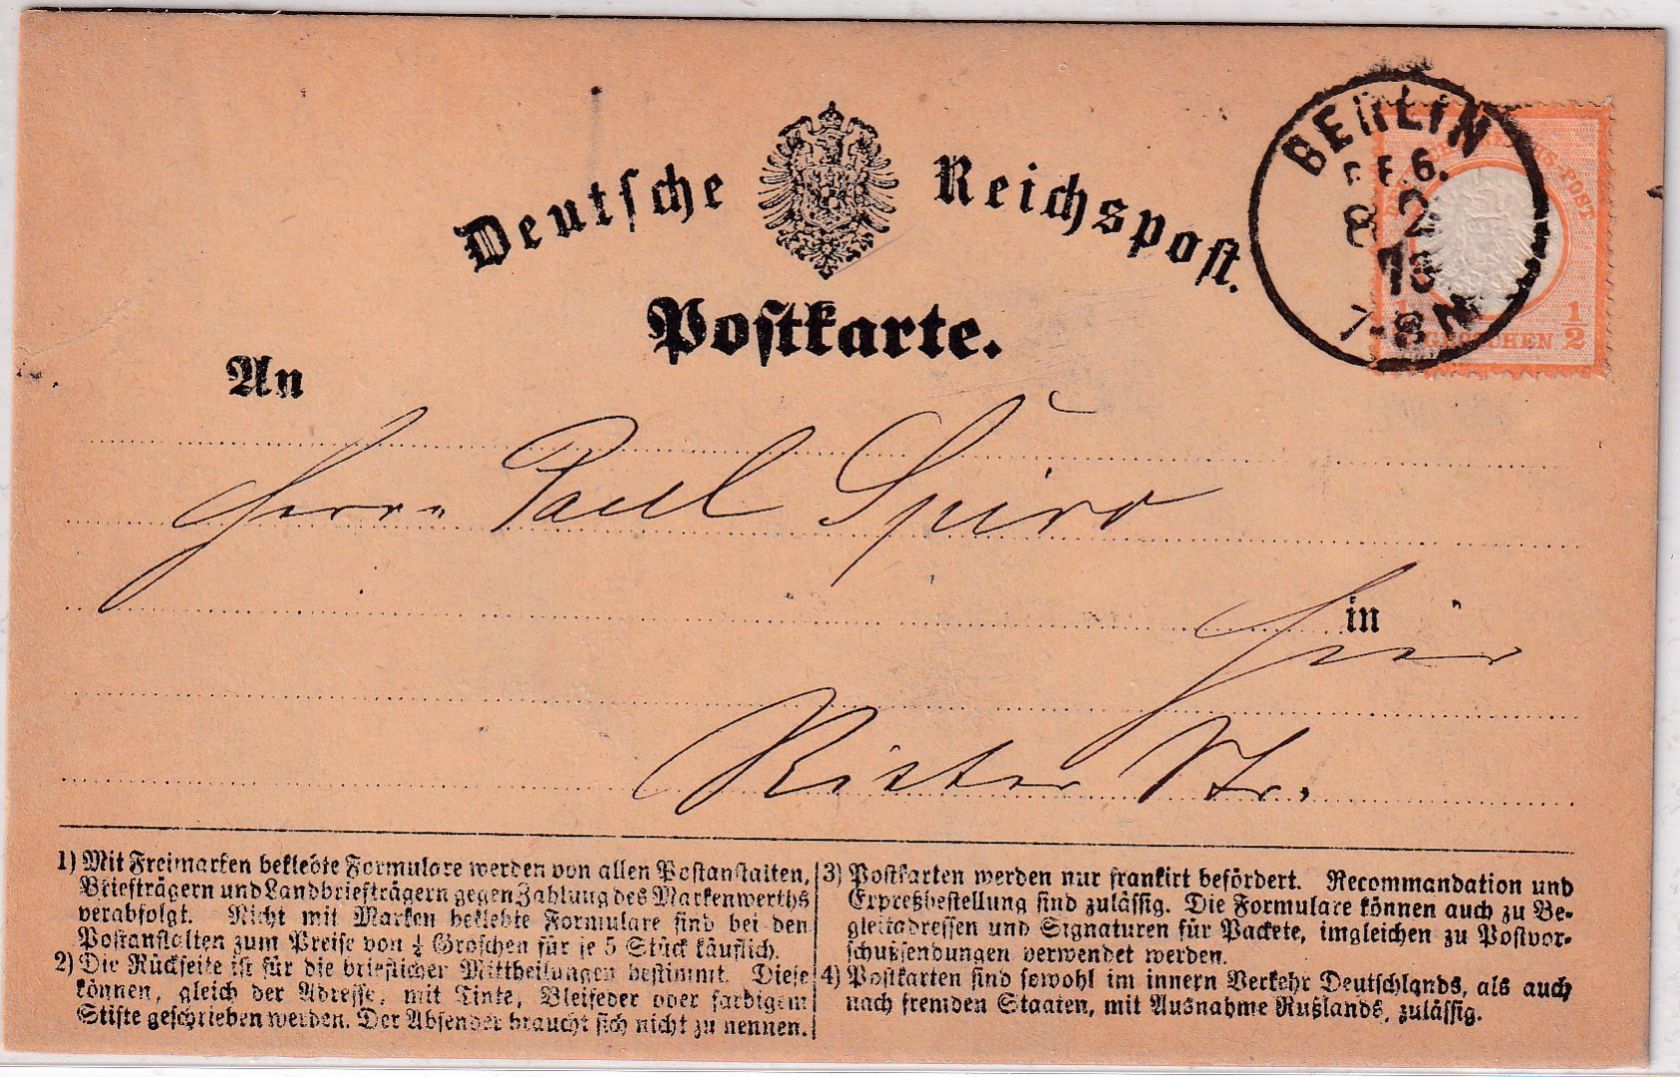 Deutsche Reichspost.
Postkarte.
BERLIN
P. E. 6.
8 2
73
7-8 N
½ GROSCHEN ½
An
Herrn Paul Spiro
in
Hier
Ritter Str.
1) Mit Freimarken beklebte Formulare werden von allen Postanstalten,
Briefträgern und Landbriefträgern gegen Zahlung des Markenwerths
verabfolgt. Nicht mit Marken beklebte Formulare sind bei den
Postanstalten zum Preise von ¼ Groschen für je 5 Stück käuflich.
2) Die Rückseite ist für die brieflichen Mittheilungen bestimmt. Diese
können, gleich der Adresse, mit Tinte, Bleifeder oder farbigem
Stifte geschrieben werden. Der Absender braucht sich nicht zu nennen.
3) Postkarten werden nur frankirt befördert. Recommandation und
Expreßbestellung sind zulässig. Die Formulare können auch zu Be-
gleitadressen und Signaturen für Packete, imgleichen zu Postvor-
schußsendungen verwendet werden.
4) Postkarten sind sowohl im innern Verkehr Deutschlands, als auch
nach fremden Staaten, mit Ausnahme Rußlands, zulässig.